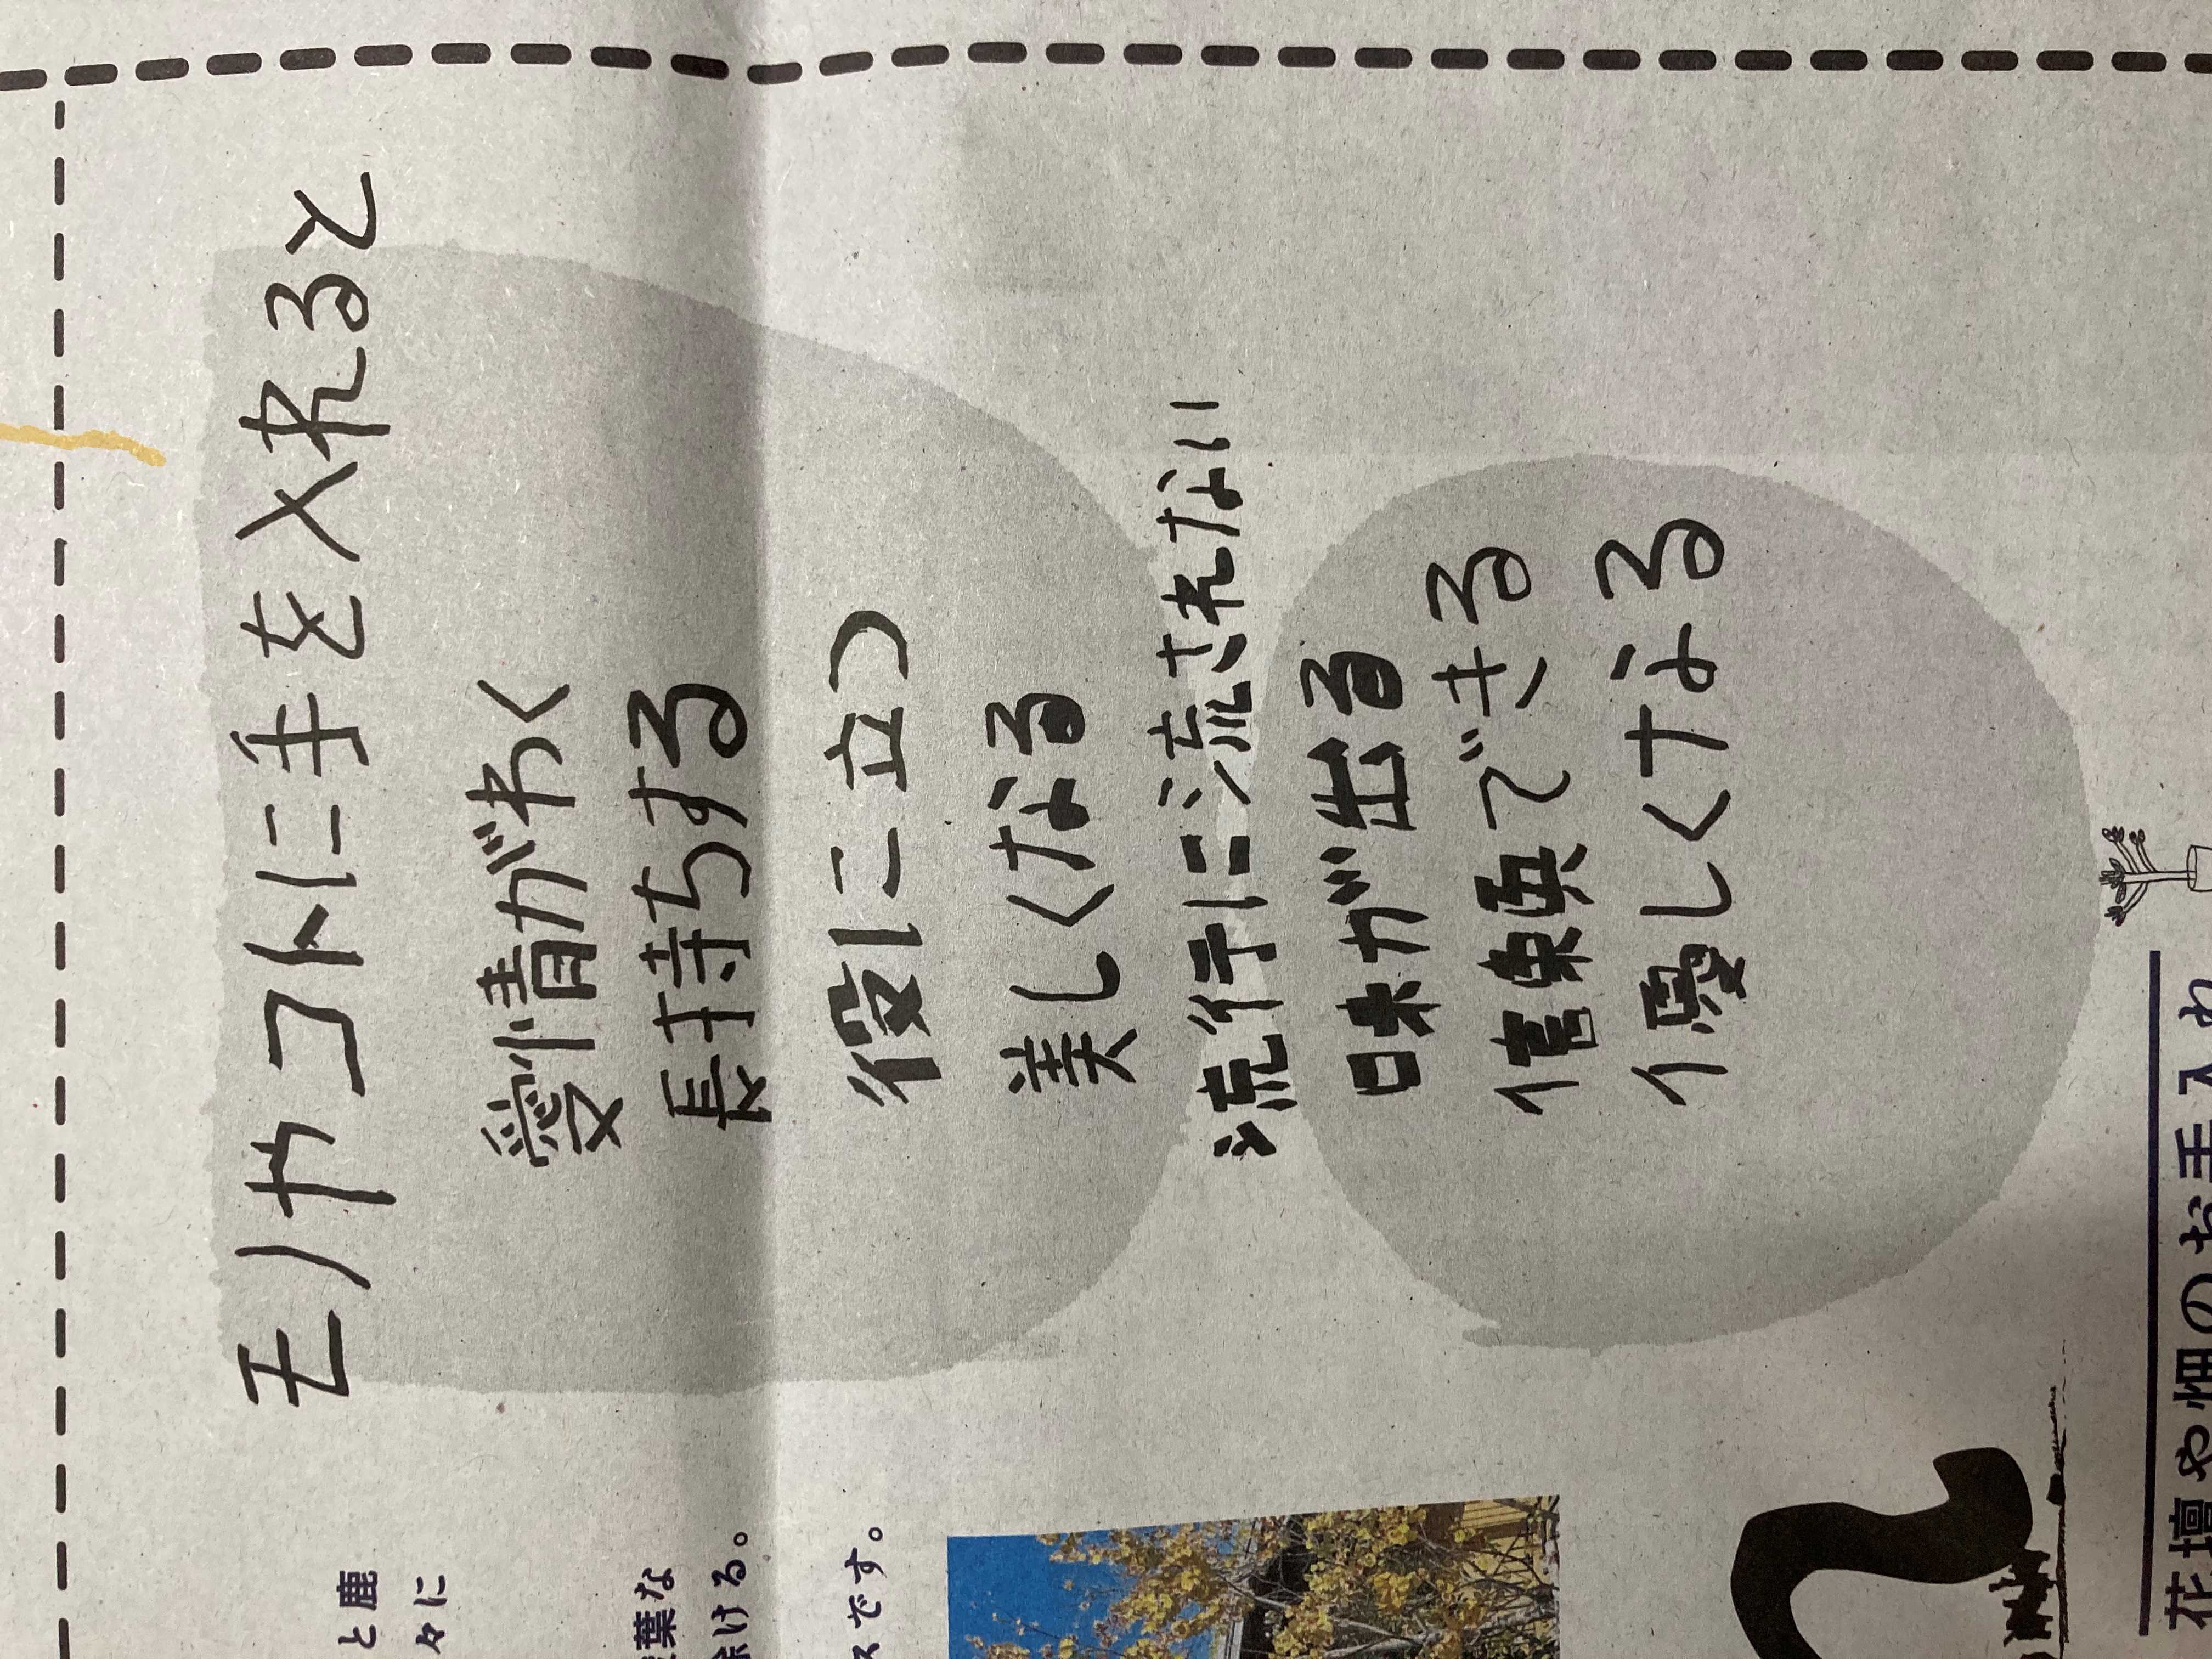 モノやコトに手を入れると
愛情がわく
長持ちする
役に立つ
美しくなる
流行に流されない
味が出る
信頼できる
優しくなる
と鹿
々に
葉な
ける。
スです。
花壇や畑のお手入れ